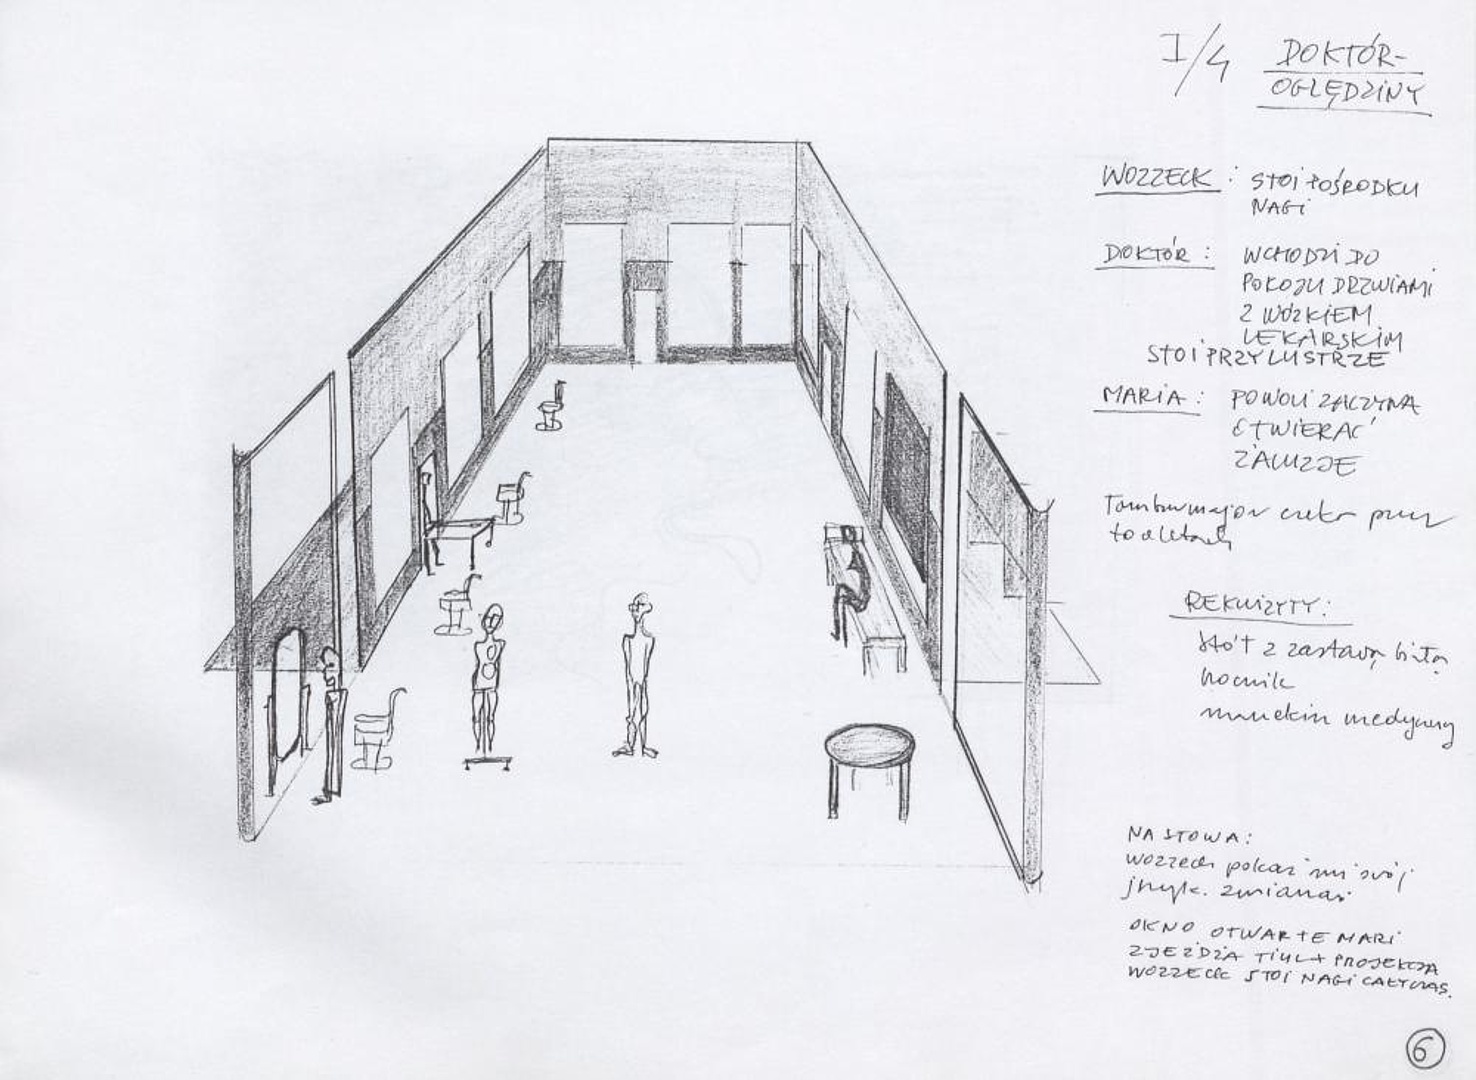 I/4 DOKTÓR-
OGLĘDZINY
WOZZECK : STOI POŚRODKU
NAGI
DOKTÓR : WCHODZI DO
POKOJU DRZWIAMI
Z WÓZKIEM
LEKARSKIM
STOI PRZY LUSTRZE
MARIA : POWOLI ZACZYNA
OTWIERAĆ
ŻALUZJE
Tamburmajor czeka przy
toaletach
REKWIZYTY:
stół z zastawą białą
nocnik
manekin medyczny
NA SŁOWA:
Wozzeck pokaż mi swój
język. zmiana
OKNO OTWARTE MARI
ZJEŻDŻA TIUL + PROJEKCJA
WOZZECK STOI NAGI CAŁY CZAS.
6